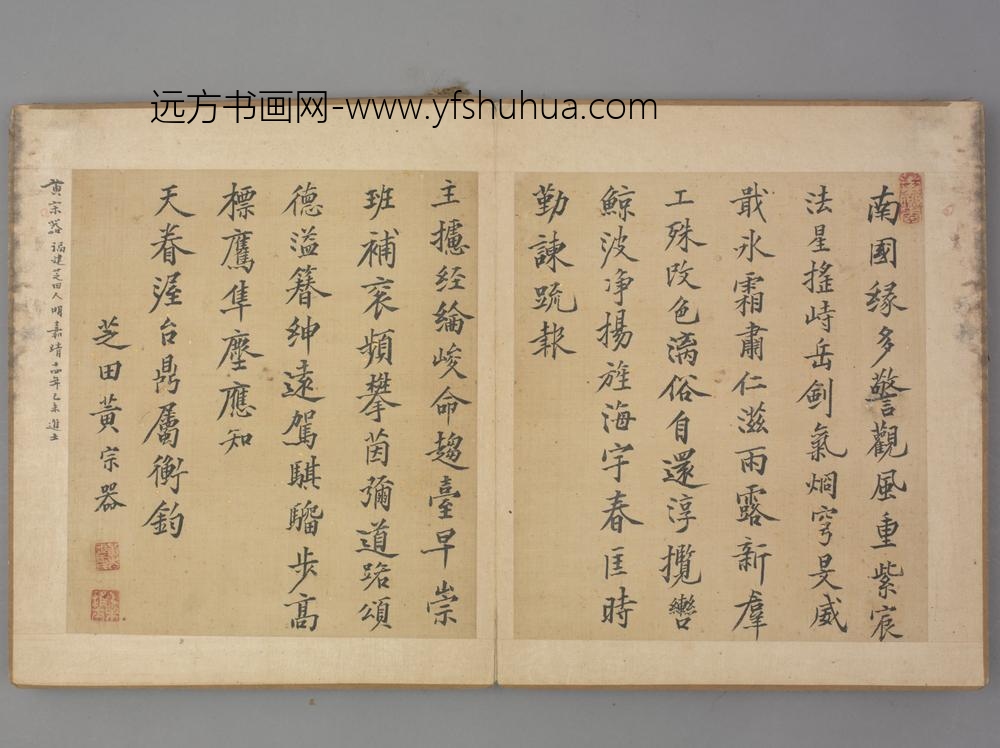 远方书画网-www.yfshuhua.com
南國緣多警觀風重紫宸
法星搖峙岳劍氣烱穹旻威
戢氷霜肅仁滋雨露新羣
工殊改色漓俗自還淳攬轡
鯨波净揚旌海宇春匡時
勤諫疏報
主攄经綸峻命趨臺早崇
班補衮頻攀茵彌道路頌
德溢簪紳遠駕騏驑步高
標鷹隼塵應知
天眷渥台鼎屬衡鈞
芝田黃宗器
黄宗器 福建芝田人明嘉靖十四年乙未進士